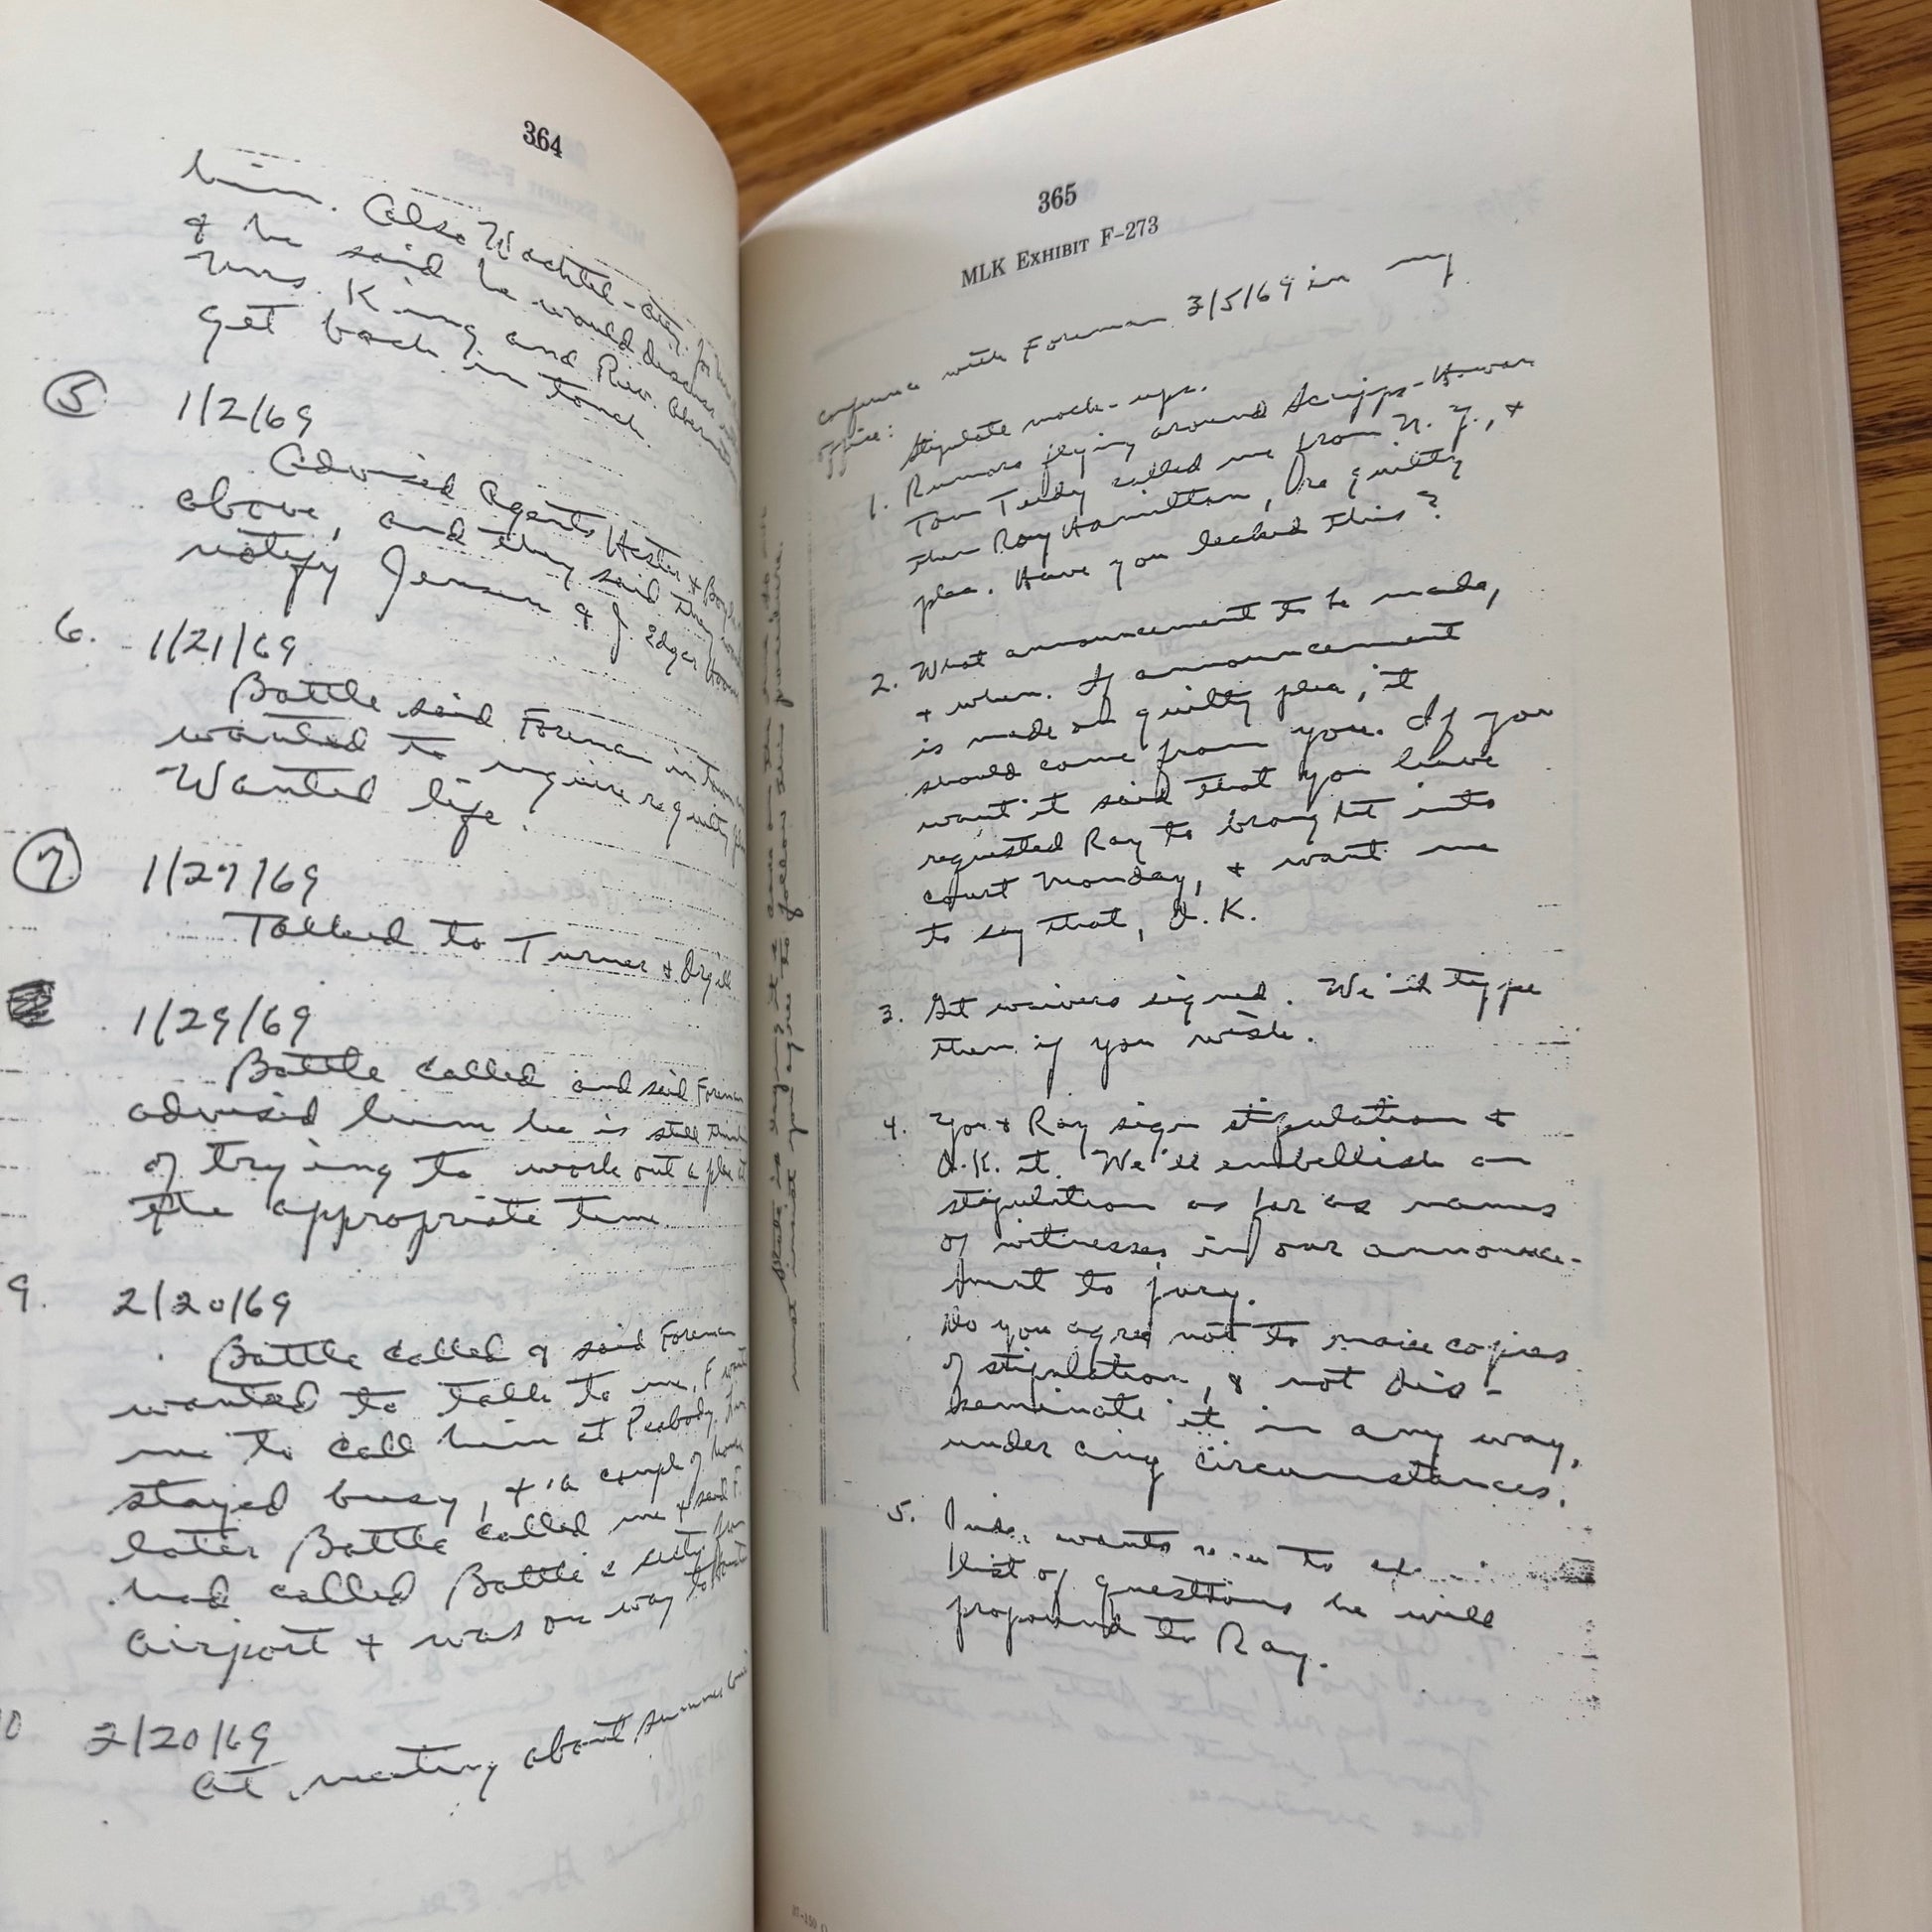 364
him. Also Wachtel-atty. for
& he said he would discuss
Mrs. King and Rev.
get back in touch.
5 1/2/69
Advised Agents Hester &
above, and they said they
notify Jensen & J. Edgar
6. 1/21/69
Battle said Foreman in town
wanted to inquire re guilty
Wanted life.
7. 1/27/69
Talked to Turner &
1/29/69
Battle called and said Foreman
advised him he is still
of trying to work out a plea
the appropriate time
9. 2/20/69
Battle called & said Foreman
wanted to talk to me, F
me to call him at Peabody.
stayed busy, & a couple of
later Battle called me & said F.
had called Battle's from
airport & was on way to
2/20/69
at meeting about
365
MLK EXHIBIT F-273
with Foreman 3/5/69 in my
office:
Stipulate mock-ups.
1. Rumors flying around Scripps-
Tom Teddy called me from N. Y., &
then Roy Hamilton, re guilty
plea. Have you leaked this?
2. What announcement to be made,
& when. If announcement
is made on guilty plea, it
should come from you. If you
want it said that you have
requested Ray to brought into
court Monday, & want me
to say that, O. K.
3. Get waivers signed. We'll type
them if you wish.
4. You & Ray sign stipulation &
O.K. it. We'll embellish on
stipulation as far as names
of witnesses in our announce-
ment to jury.
Do you agree not to make copies
of stipulation, & not dis-
seminate it in any way,
under any circumstances.
5. wants to
list of questions he will
propound to Ray.
must insist you agree to follow this procedure.